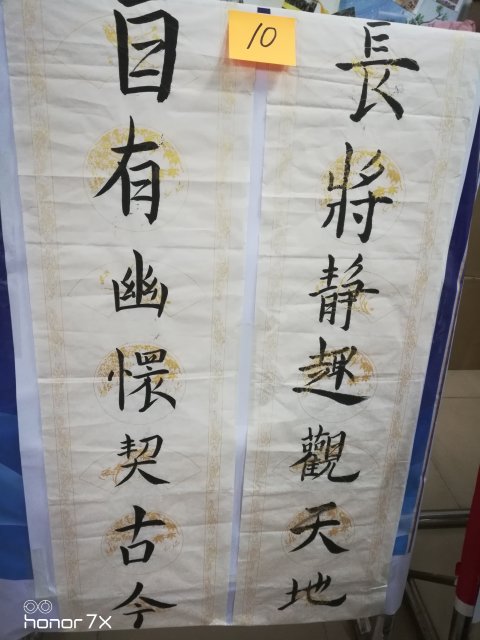 10
長將靜趣觀天地
自有幽懷契古今
honor 7X